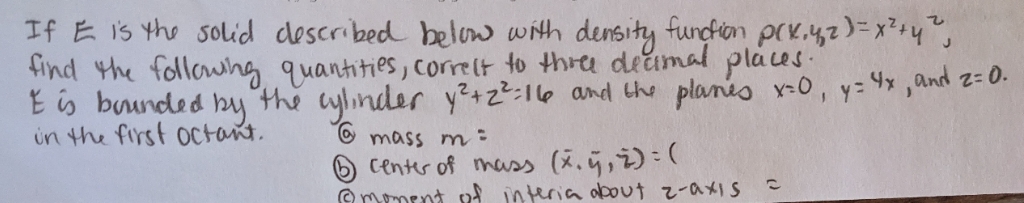 If E is the solid described below with density function ρ(x,y,z)=x²+y²,
find the following quantities, correct to three decimal places.
E is bounded by the cylinder y²+z²=16 and the planes x=0, y=4x, and z=0.
in the first octant.
ⓐ mass m =
ⓑ center of mass (x̄, ȳ, z̄) = (
ⓒ moment of interia about z-axis =